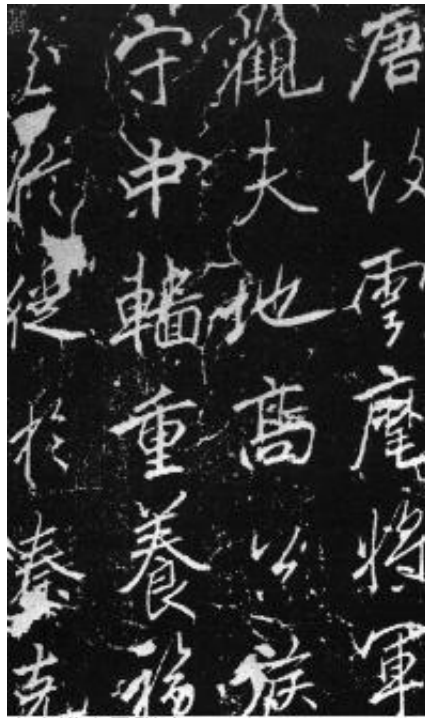 唐故雲麾將軍
觀夫地高公族
守中輜重養福
至徙於秦克